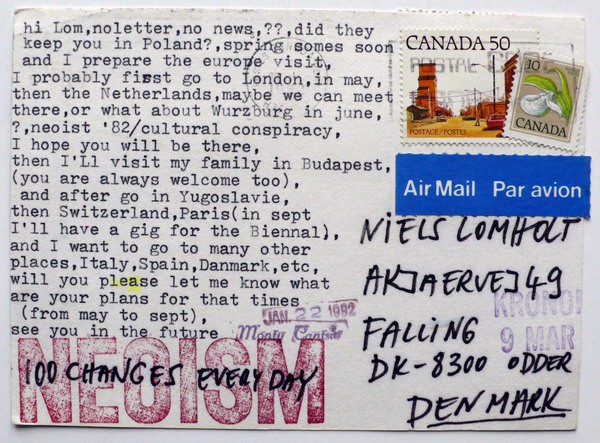 hi Lom,noletter,no news,??,did they
keep you in Poland?,spring comes soon
and I prepare the europe visit,
I probably first go to London,in may,
then the Netherlands,maybe we can meet
there,or what about Wurzburg in june,
?,neoist '82/cultural conspiracy,
I hope you will be there,
then I'Ll visit my family in Budapest,
(you are always welcome too),
and after go in Yugoslavie,
then Switzerland,Paris(in sept
I'll have a gig for the Biennal),
and I want to go to many other
places,Italy,Spain,Danmark,etc,
will you please let me know what
are your plans for that times
(from may to sept),
see you in the future
JAN. 22 1982
Monty Cantsin
NEOISM
100 CHANGES EVERY DAY
CANADA 50
POSTAGE/POSTES
10
CANADA
POSTAL
Air Mail Par avion
NIELS LOMHOLT
AKJAERVEJ 49
KRONO
9 MAR
FALLING
DK-8300 ODDER
DENMARK